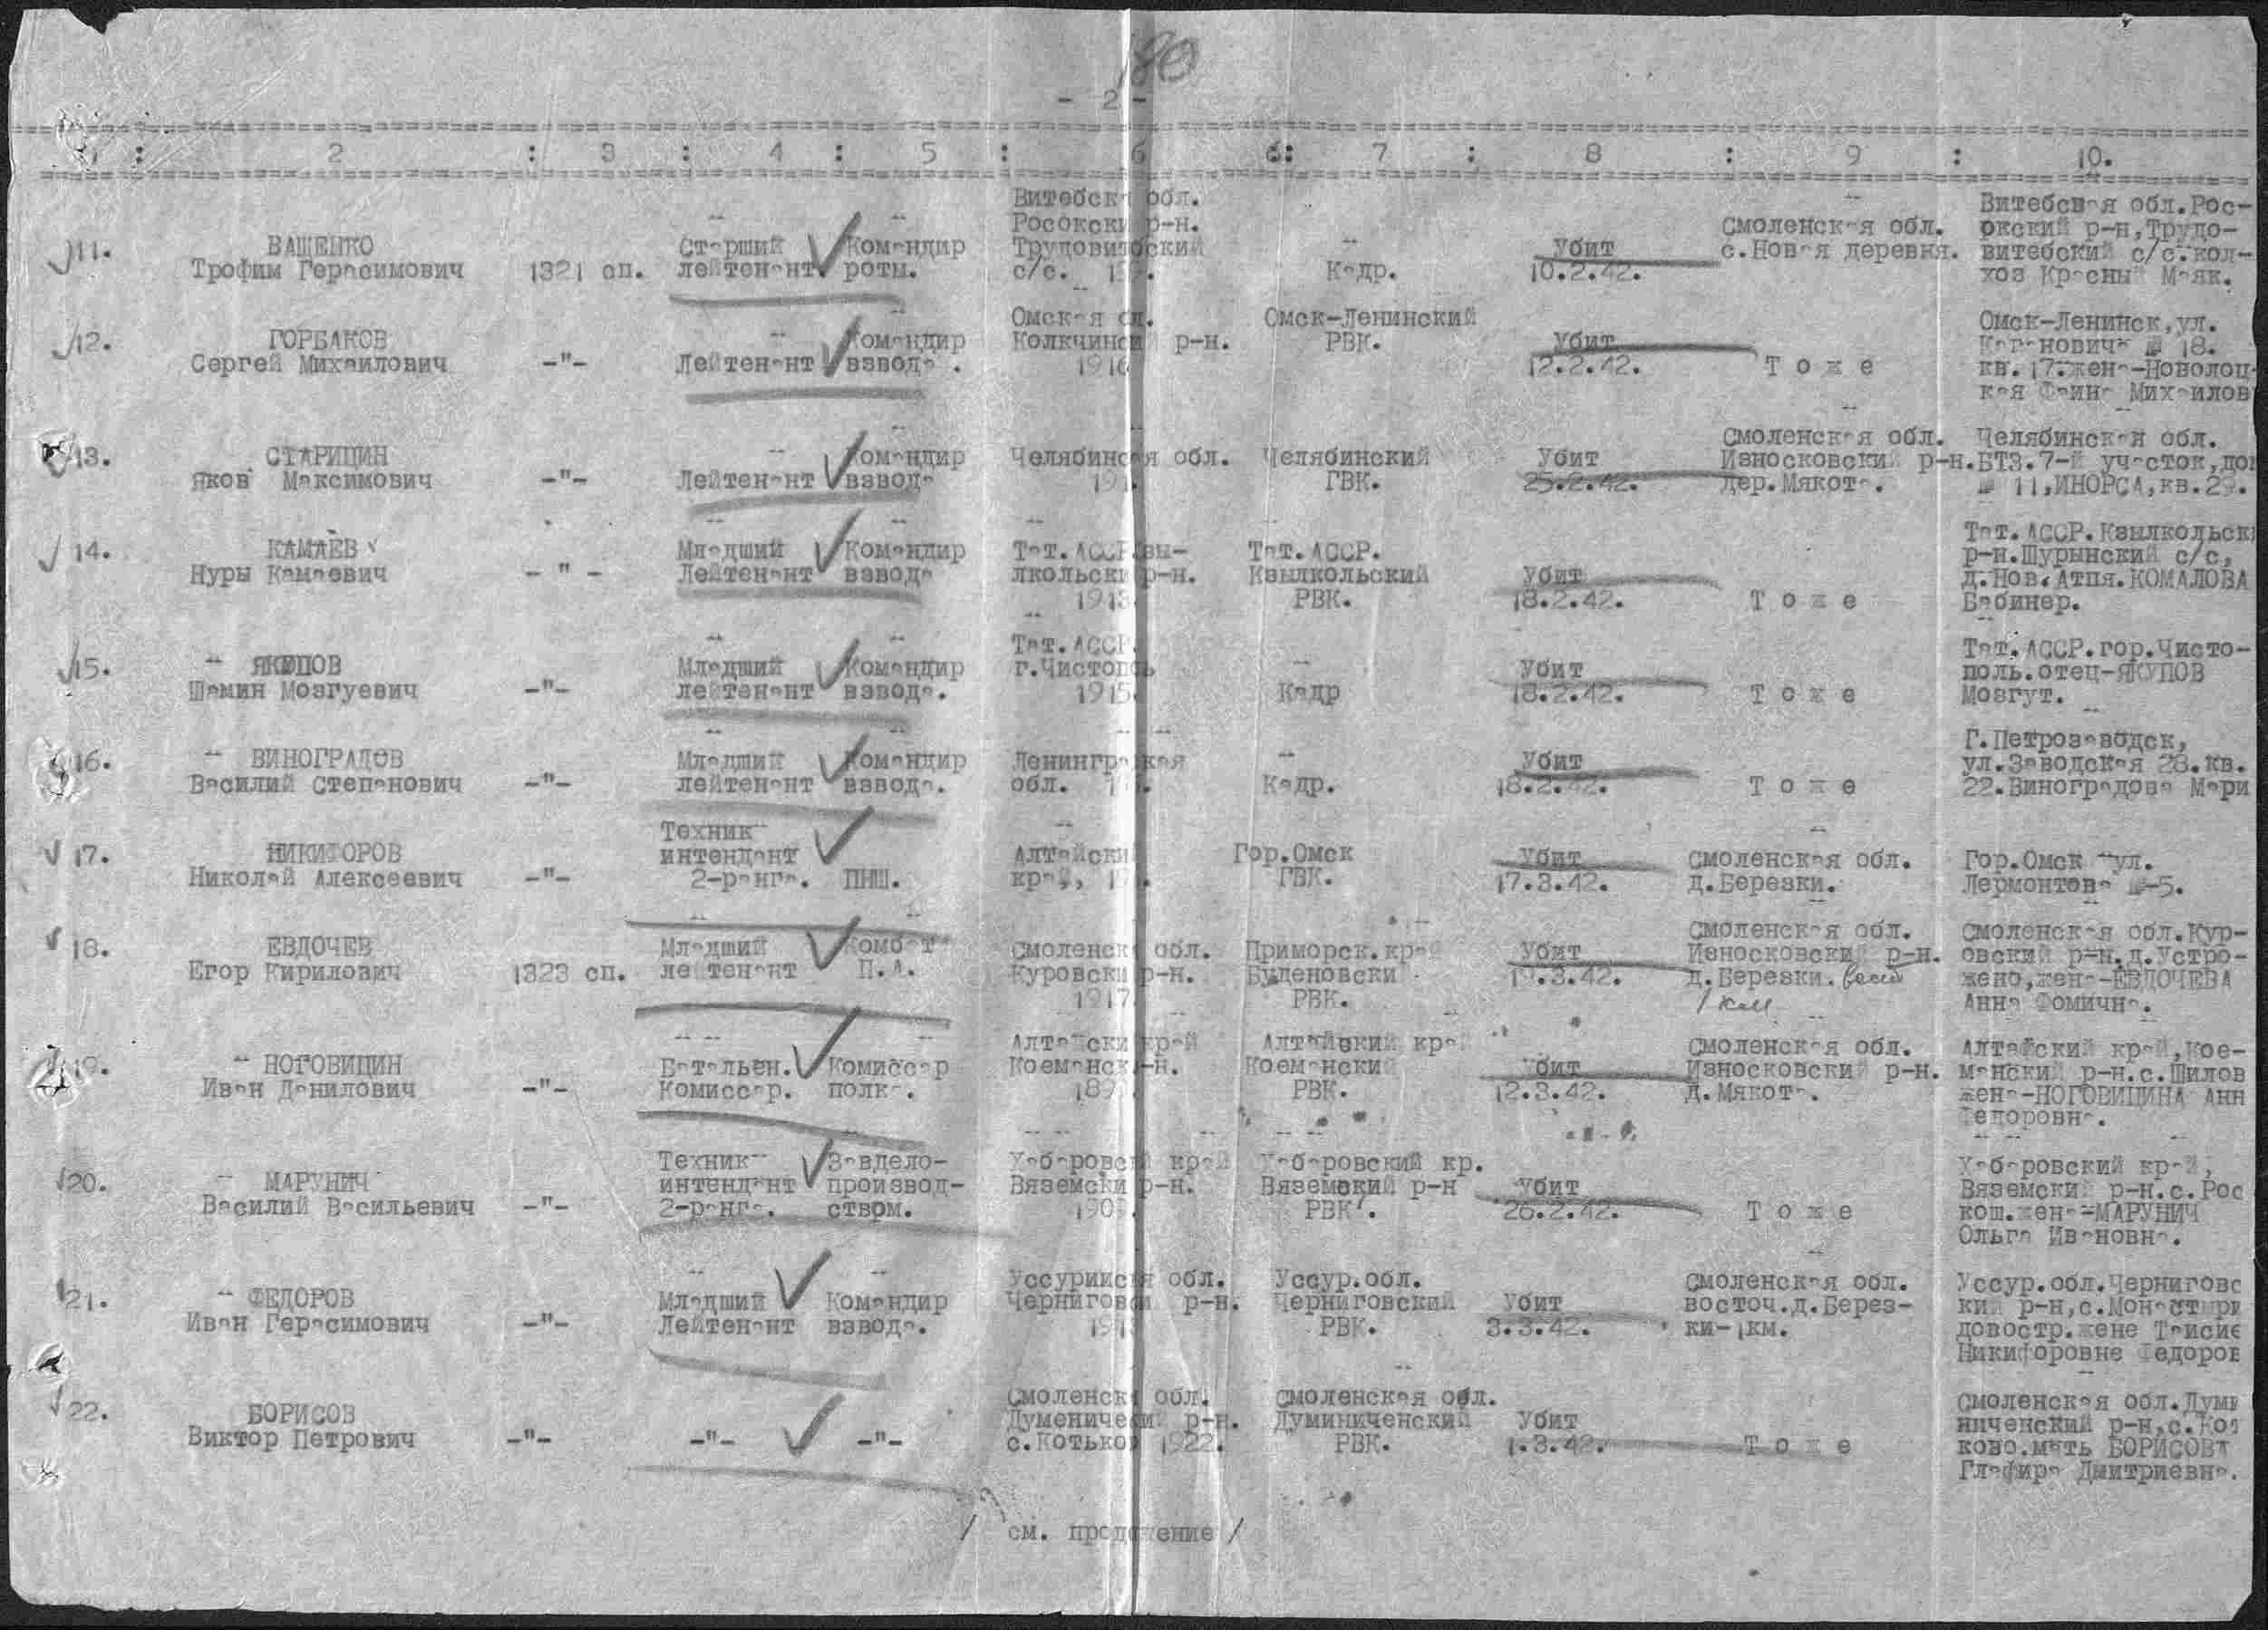 180
- 2 -
1 : 2 : 3 : 4 : 5 : 6 6: 7 : 8 : 9 : 10.
11. ВАЩЕНКО
Трофим Герасимович
1321 сп.
Старший
лейтенант
Командир
роты.
Витебск обл.
р-н.
с/с.
Кадр.
Убит
10.2.42.
Смоленская обл.
с.Новая деревня.
Витебская обл.Рос-
окский р-н,Трудо-
витебский с/с.кол-
хоз Красный Маяк.
12. ГОРБАКОВ
Сергей Михаилович
-"-
Лейтенант
Командир
взвода .
Омская
р-н.
1916
Омск-Ленинский
РВК.
Убит
12.2.42.
Т о ж е
Омск-Ленинск,ул.
Кагановича № 18.
кв.17.жена-Новолоц-
кая Фаина Михаилов
13. СТАРИЦИН
Яков Максимович
-"-
Лейтенант
Командир
взвода
Челябинская обл.
Челябинский
ГВК.
Убит
25.2.42.
Смоленская обл.
Износковский р-н.
дер.Мякота.
Челябинская обл.
БТЗ.7-й участок,дом
№ 11,ИНОРСА,кв.29.
14. КАМАЕВ
Нуры Камаевич
- " -
Младший
Лейтенант
Командир
взвода
Тат.АССР
р-н.
1913
Тат.АССР.
Кзылкольский
РВК.
Убит
18.2.42.
Т о ж е
Тат.АССР.Кзылкольск
р-н.Шурынский с/с,
д.Нов.Атпя.КОМАЛОВА
Бабинер.
15. ЯКУПОВ
Шамин Мозгуевич
-"-
Младший
лейтенант
Командир
взвода.
Тат.АССР.
г.Чистополь
1915
Кадр
Убит
18.2.42.
Т о ж е
Тат.АССР.гор.Чисто-
поль.отец-ЯКУПОВ
Мозгут.
16. ВИНОГРАДОВ
Василий Степанович
-"-
Младший
лейтенант
Командир
взвода.
обл.
Кадр.
Убит
18.2.42.
Т о ж е
Г.Петрозаводск,
ул.Заводская 28.кв.
22.Виноградова Мари
17. НИКИФОРОВ
Николай Алексеевич
-"-
Техник
интендант
2-ранга.
ПНШ.
Алтайский
край,
Гор.Омск
ГВК.
Убит
17.3.42.
Смоленская обл.
д.Березки.
Гор.Омск ул.
Лермонтова №-5.
18. ЕВДОЧЕВ
Егор Кирилович
1323 сп.
Младший
лейтенант
Комбат
П.А.
Смоленск обл.
Куровски р-н.
1917
Приморск.край
Буденовски
РВК.
Убит
19.3.42.
Смоленская обл.
Износковский р-н.
д.Березки.
1 км
Смоленская обл.Кур-
овский р-н.д.Устро-
жено,жена-ЕВДОЧЕВА
Анна Фомична.
19. НОГОВИЦИН
Иван Данилович
-"-
Батальен.
Комиссар.
Комиссар
полка.
Алтайский край
Косманск
189
Алтайский край
Косманский
РВК.
Убит
12.3.42.
Смоленская обл.
Износковский р-н.
д.Мякота.
Алтайский край,Кос-
манский р-н.с.Шилов
жена-НОГОВИЦИНА Анн
Федоровна.
20. МАРУНИЧ
Василий Васильевич
-"-
Техник
интендант
2-ранга.
Завдело-
производ-
ством.
Хабаровский край
Вяземски р-н.
190
Хабаровский кр.
Вяземский р-н
РВК.
Убит
26.2.42.
Т о ж е
Хабаровский край,
Вяземский р-н.с.Рос
кош.жена-МАРУНИЧ
Ольга Ивановна.
21. ФЕДОРОВ
Иван Герасимович
-"-
Младший
Лейтенант
Командир
взвода.
обл.
р-н.
Уссур.обл.
Черниговский
РВК.
Убит
3.3.42.
Смоленская обл.
восточ.д.Берез-
ки-1км.
Уссур.обл.Черниговс
кий р-н,с.Монастыри
довостр.жене Таисие
Никифоровне Федоров
22. БОРИСОВ
Виктор Петрович
-"-
-"-
-"-
Смоленск обл.
р-н.
с.Котько 1922.
Смоленская обл.
Думиниченский
РВК.
Убит
1.3.42.
Т о ж е
Смоленская обл.Думи
ниченский р-н,с.Кот
ково.мать БОРИСОВА
Глафира Дмитриевна.
/ см. продолжение /